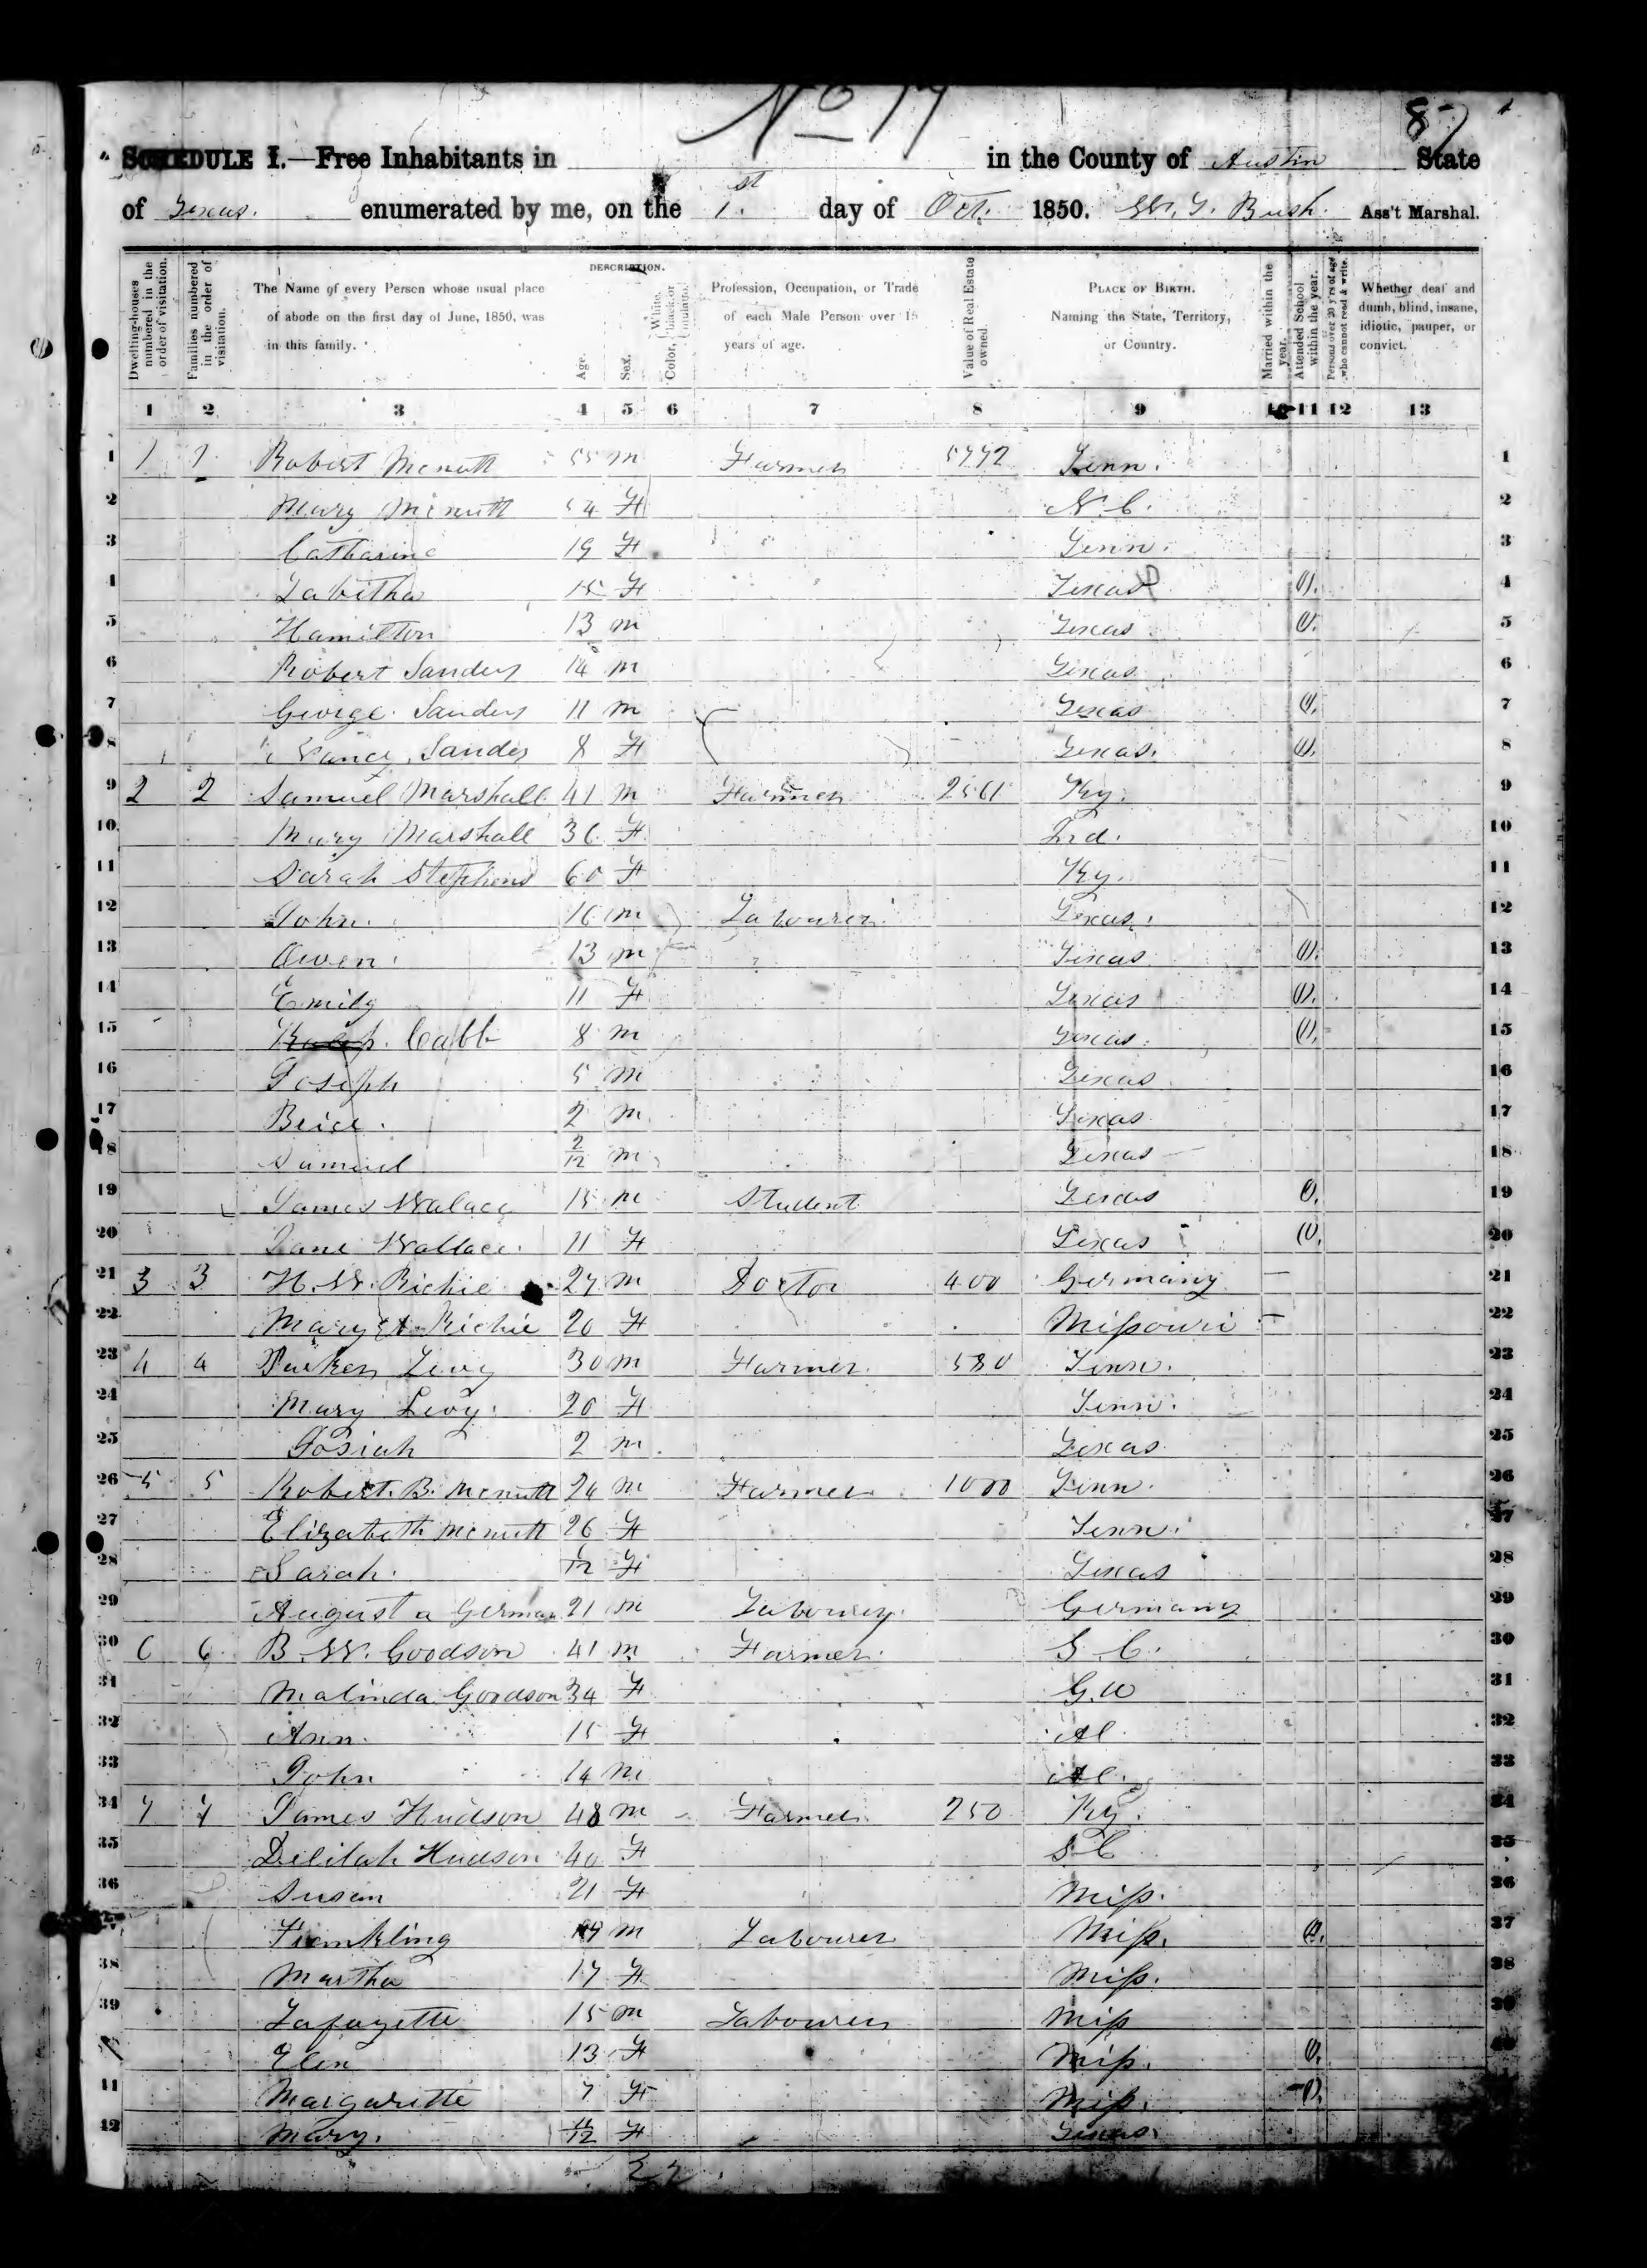 No 17
87
SCHEDULE I.—Free Inhabitants in in the County of Austin State
of Texas. enumerated by me, on the 1.st day of Oct. 1850. Bush. Ass't Marshal.
DESCRIPTION.
Dwelling-houses numbered in the order of visitation.
Families numbered in the order of visitation.
The Name of every Person whose usual place of abode on the first day of June, 1850, was in this family.
Age.
Sex.
Color, White, black or mulatto.
Profession, Occupation, or Trade of each Male Person over 15 years of age.
Value of Real Estate owned.
PLACE OF BIRTH. Naming the State, Territory, or Country.
Married within the year.
Attended School within the year.
Persons over 20 y'rs of age who cannot read & write.
Whether deaf and dumb, blind, insane, idiotic, pauper, or convict.
1 2 3 4 5 6 7 8 9 10 11 12 13
1 1 1 Robert Mcnutt 55 m Farmer Tenn. 1
2 Mary Mcnutt 54 F N.C. 2
3 Catharine 19 F Tenn. 3
4 Tabitha 15 F Texas 4
5 Hamilton 13 m Texas 5
6 Robert Sanders 14 m Texas 6
7 George Sanders 11 m Texas 7
8 Nancy Sanders 8 F Texas. 8
9 2 2 Samuel Marshall 41 m Farmer 2561 Ky. 9
10 Mary Marshall 36 F Ind. 10
11 Sarah Stephens 60 F Ky. 11
12 John. 16 m Labourer Texas. 12
13 Owen. 13 m Texas 13
14 Emily 11 F Texas 14
15 Calb 8 m Texas. 15
16 Joseph 5 m Texas 16
17 Brice. 2 m Texas 17
18 Samuel 2/12 m Texas 18
19 James Walace 15 m Student Texas 19
20 Jane Wallace. 11 F Texas 20
21 3 3 H. W. Richie 27 m Doctor 400 Germany 21
22 Mary A Richie 20 F Missouri 22
23 4 4 Levy 30 m Farmer. 580 Tenn. 23
24 Mary Levy. 20 F Tenn. 24
25 Josiah 2 m Texas 25
26 5 5 Robert. B. Mcnutt 24 m Farmer 1000 Tenn. 26
27 Elizabeth Mcnutt 26 F Tenn. 27
28 Sarah. F Texas 28
29 August a German 21 m Labourer Germany 29
30 6 6 B. W. Goodson 41 m Farmer S. C. 30
31 Malinda Goodson 34 F 31
32 Ann. 15 F Al. 32
33 John 14 m Al. 33
34 7 7 James Hudson 48 m Farmer 250 Ky. 34
35 Delilah Hudson 40 F S C 35
36 Susan 21 F Miss. 36
37 Frankling 19 m Labourer Miss. 37
38 Martha 17 F Miss. 38
39 Lafayette 15 m Labourer Miss 39
Elen 13 F Miss. 40
41 Margarette 7 F Miss.
42 Mary. 11/12 F Texas.